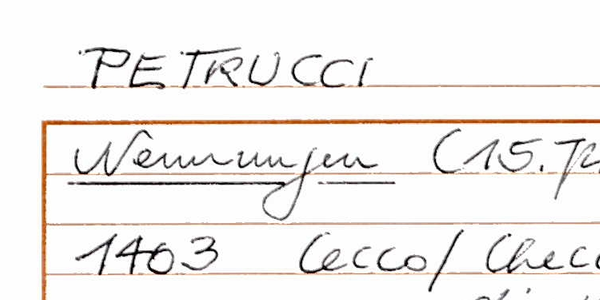 PETRUCCI
Nennungen (15.
1403 Cecco/ Checc